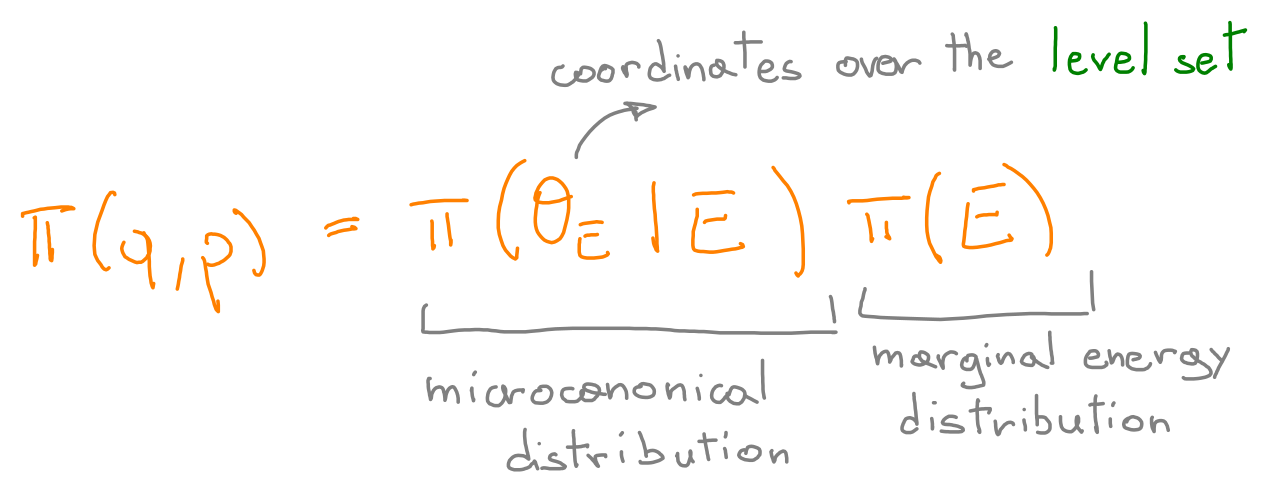 coordinates over the level set
π(q,p) = π(θ_E | E) π(E)
microcanonical distribution
marginal energy distribution